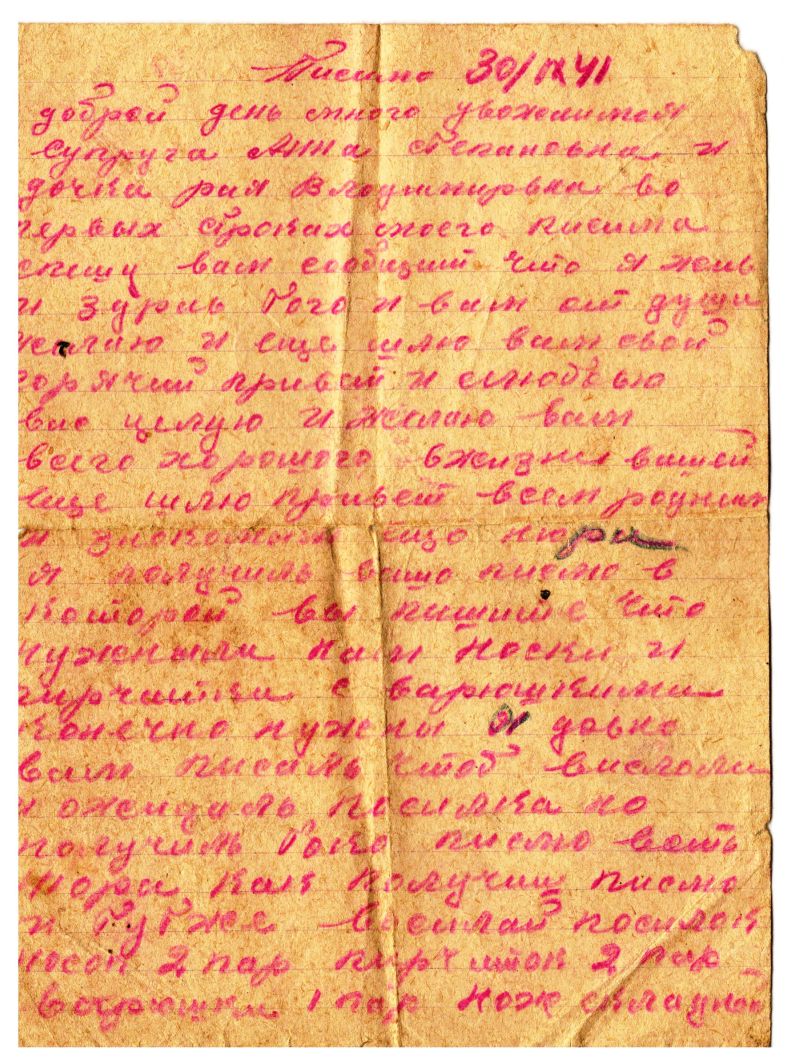 Писмо 30/IX 41
доброй день много уважаимая
супруга Анна Степановна и
дочка рая Владимировна во
первых строках моего писима
спешу вам сообщит что я жив
и здрвь того и вам от души
желаю и еще шлю вам свой
горячий привет и слюбъвю
вас целую и желаю вам
всего хорошего вжизни вашей
еще шлю привет всем родным
и знокомым еще нюра
я получиль вашо писмо в
которой вы пишите что
нужныли нам носки и
пирчатки с варюшкими
конечно нужны я довно
вам писаль чтоб выслали
и ожидаль посилка но
получиль толко писмо вот
нюра как получиш писмо
и тутже висилай посилок
носок 2 пар пирчаток 2 пар
варюшки 1 пар нож складной